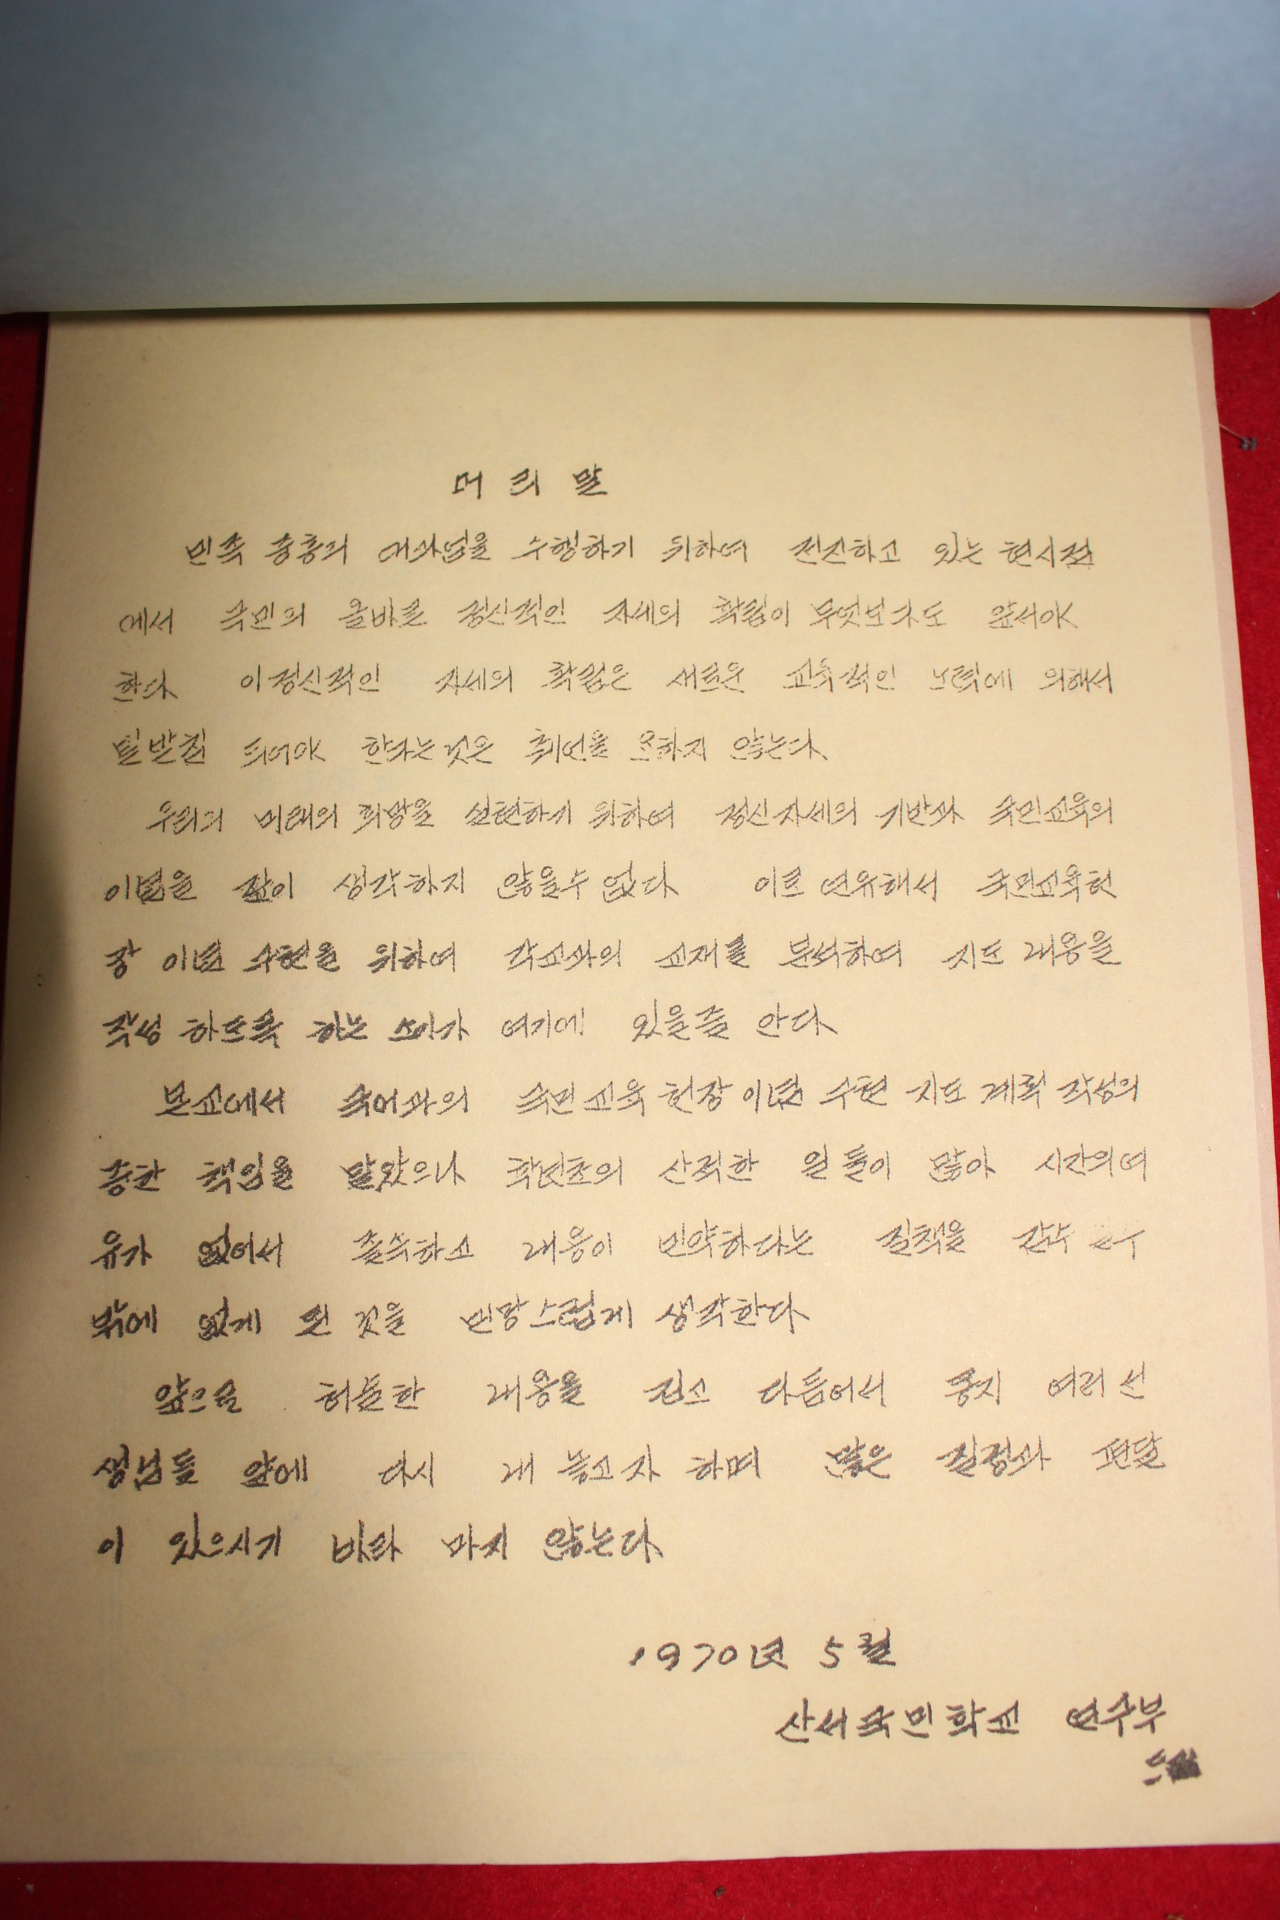 머리말
민족 중흥의 대과업을 수행하기 위하여 전진하고 있는 현시점
에서 국민의 올바른 정신적인 자세의 확립이 무엇보다도 앞서야
한다 이 정신적인 자세의 확립은 새로운 교육적인 노력에 의해서
뒷받침 되어야 한다는 것은 췌언을 요하지 않는다.
우리의 미래의 희망을 실현하기 위하여 정신자세의 기반과 국민교육의
이념을 깊이 생각하지 않을수 없다 이로 연유해서 국민교육헌
장 이념 구현을 위하여 각교과의 교재를 분석하여 지도 내용을
작성 하도록 하는 소이가 여기에 있을줄 안다.
본교에서 국어과의 국민교육헌장 이념 구현 지도 계획 작성의
중한 책임을 맡았으나 학년초의 산적한 일들이 많아 시간의 여
유가 없어서 졸속하고 내용이 빈약하다는 질책을 감수 할수
밖에 없게 된 것을 민망스럽게 생각한다.
앞으로 허술한 내용을 깁고 다듬어서 동지 여러 선
생님들 앞에 다시 내 놓고자 하며 많은 질정과 편달
이 있으시기 바라 마지 않는다.
1970년 5월
산서국민학교 연수부